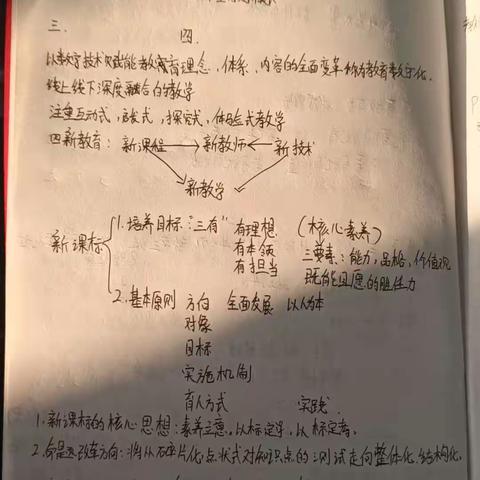 三.
四.
以数字技术赋能教育理念、体系、内容的全面变革称为教育数字化.
线上线下深度融合的教学
注重互动式,启发式,探究式,体验式教学
四新教育: 新课程 新教师 新技术
新教学
新课标
1. 培养目标: "三有" 有理想 (核心素养)
有本领 三要素: 能力,品格,价值观
有担当 既能且愿的胜任力
2. 基本原则 方向 全面发展 以人为本
对象
目标
实施机制
育人方式 实践.
1. 新课标的核心思想: 素养立意,以标定学,以标定考.
2. 命题改革方向: 将从碎片化,点状式对知识点的测试走向整体化.结构化.